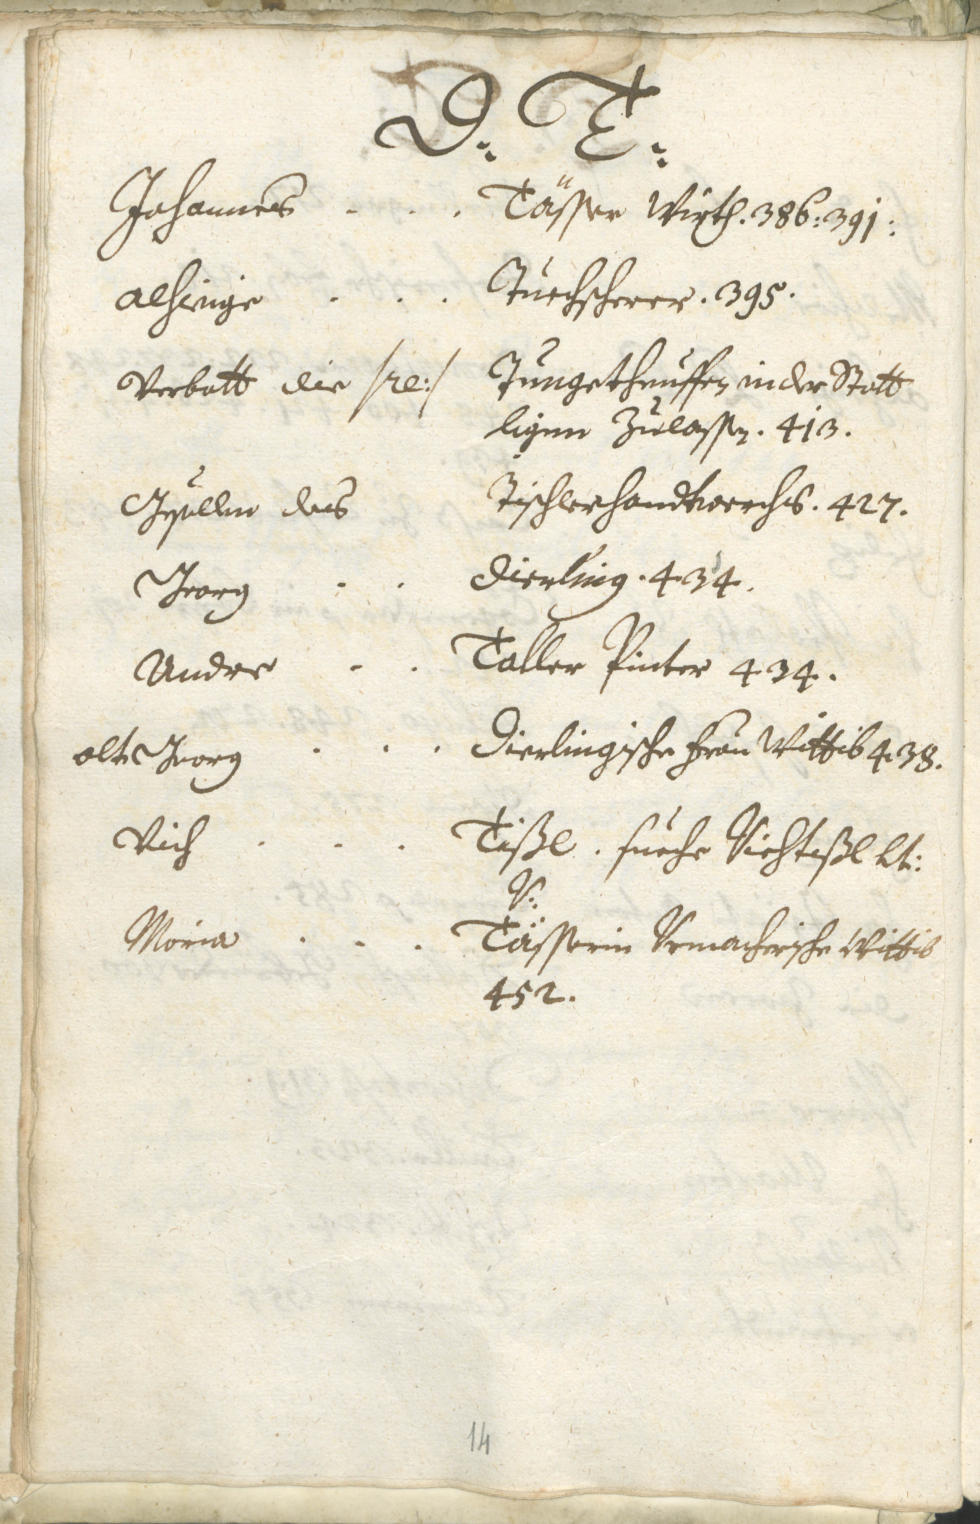 D: T:
Johannes . . . Tässer Wirth. 386: 391:
Alhieige . . . Tuechscherer. 395.
Verbott die /:re:/ Tungethauffen in der Statt
ligen Zuelassen. 413.
Gesellen des Tischlerhandtwerchs. 427.
Georg . . Dierling. 434.
Andre . . Taller Pinter 434.
alt Georg . . . Dierlingische Frau Wittib 438.
Vich . . . Tißl. sueche Vichtißl lt:
V:
Maria . . . Tässerin Urmacherische Wittib
452.
14